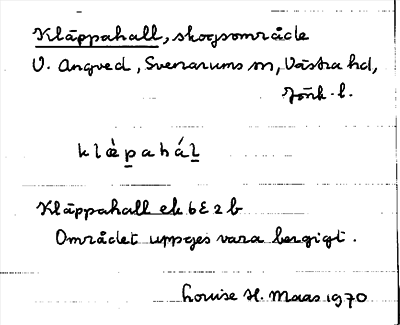 Kläppahall, skogsområde
V. Angved, Svenarums sn, Västra hd,
Jönk. l.
klæ̀pahál
Kläppahall ek 6E2b
Området uppges vara bergigt.
Louise H. Maas 1970